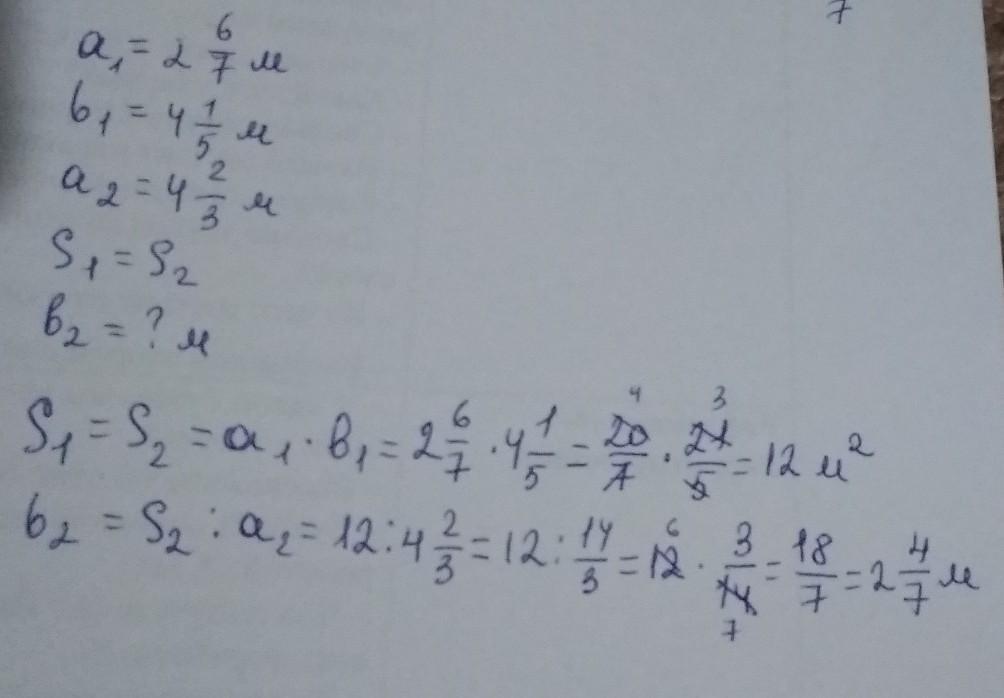 7
a₁ = 2 6/7 м
b₁ = 4 1/5 м
a₂ = 4 2/3 м
S₁ = S₂
b₂ = ? м
S₁ = S₂ = a₁ · b₁ = 2 6/7 · 4 1/5 = 20/7 · 21/5 = 12 м² 4 3
b₂ = S₂ : a₂ = 12 : 4 2/3 = 12 : 14/3 = 12 · 3/14 = 18/7 = 2 4/7 м 6 7